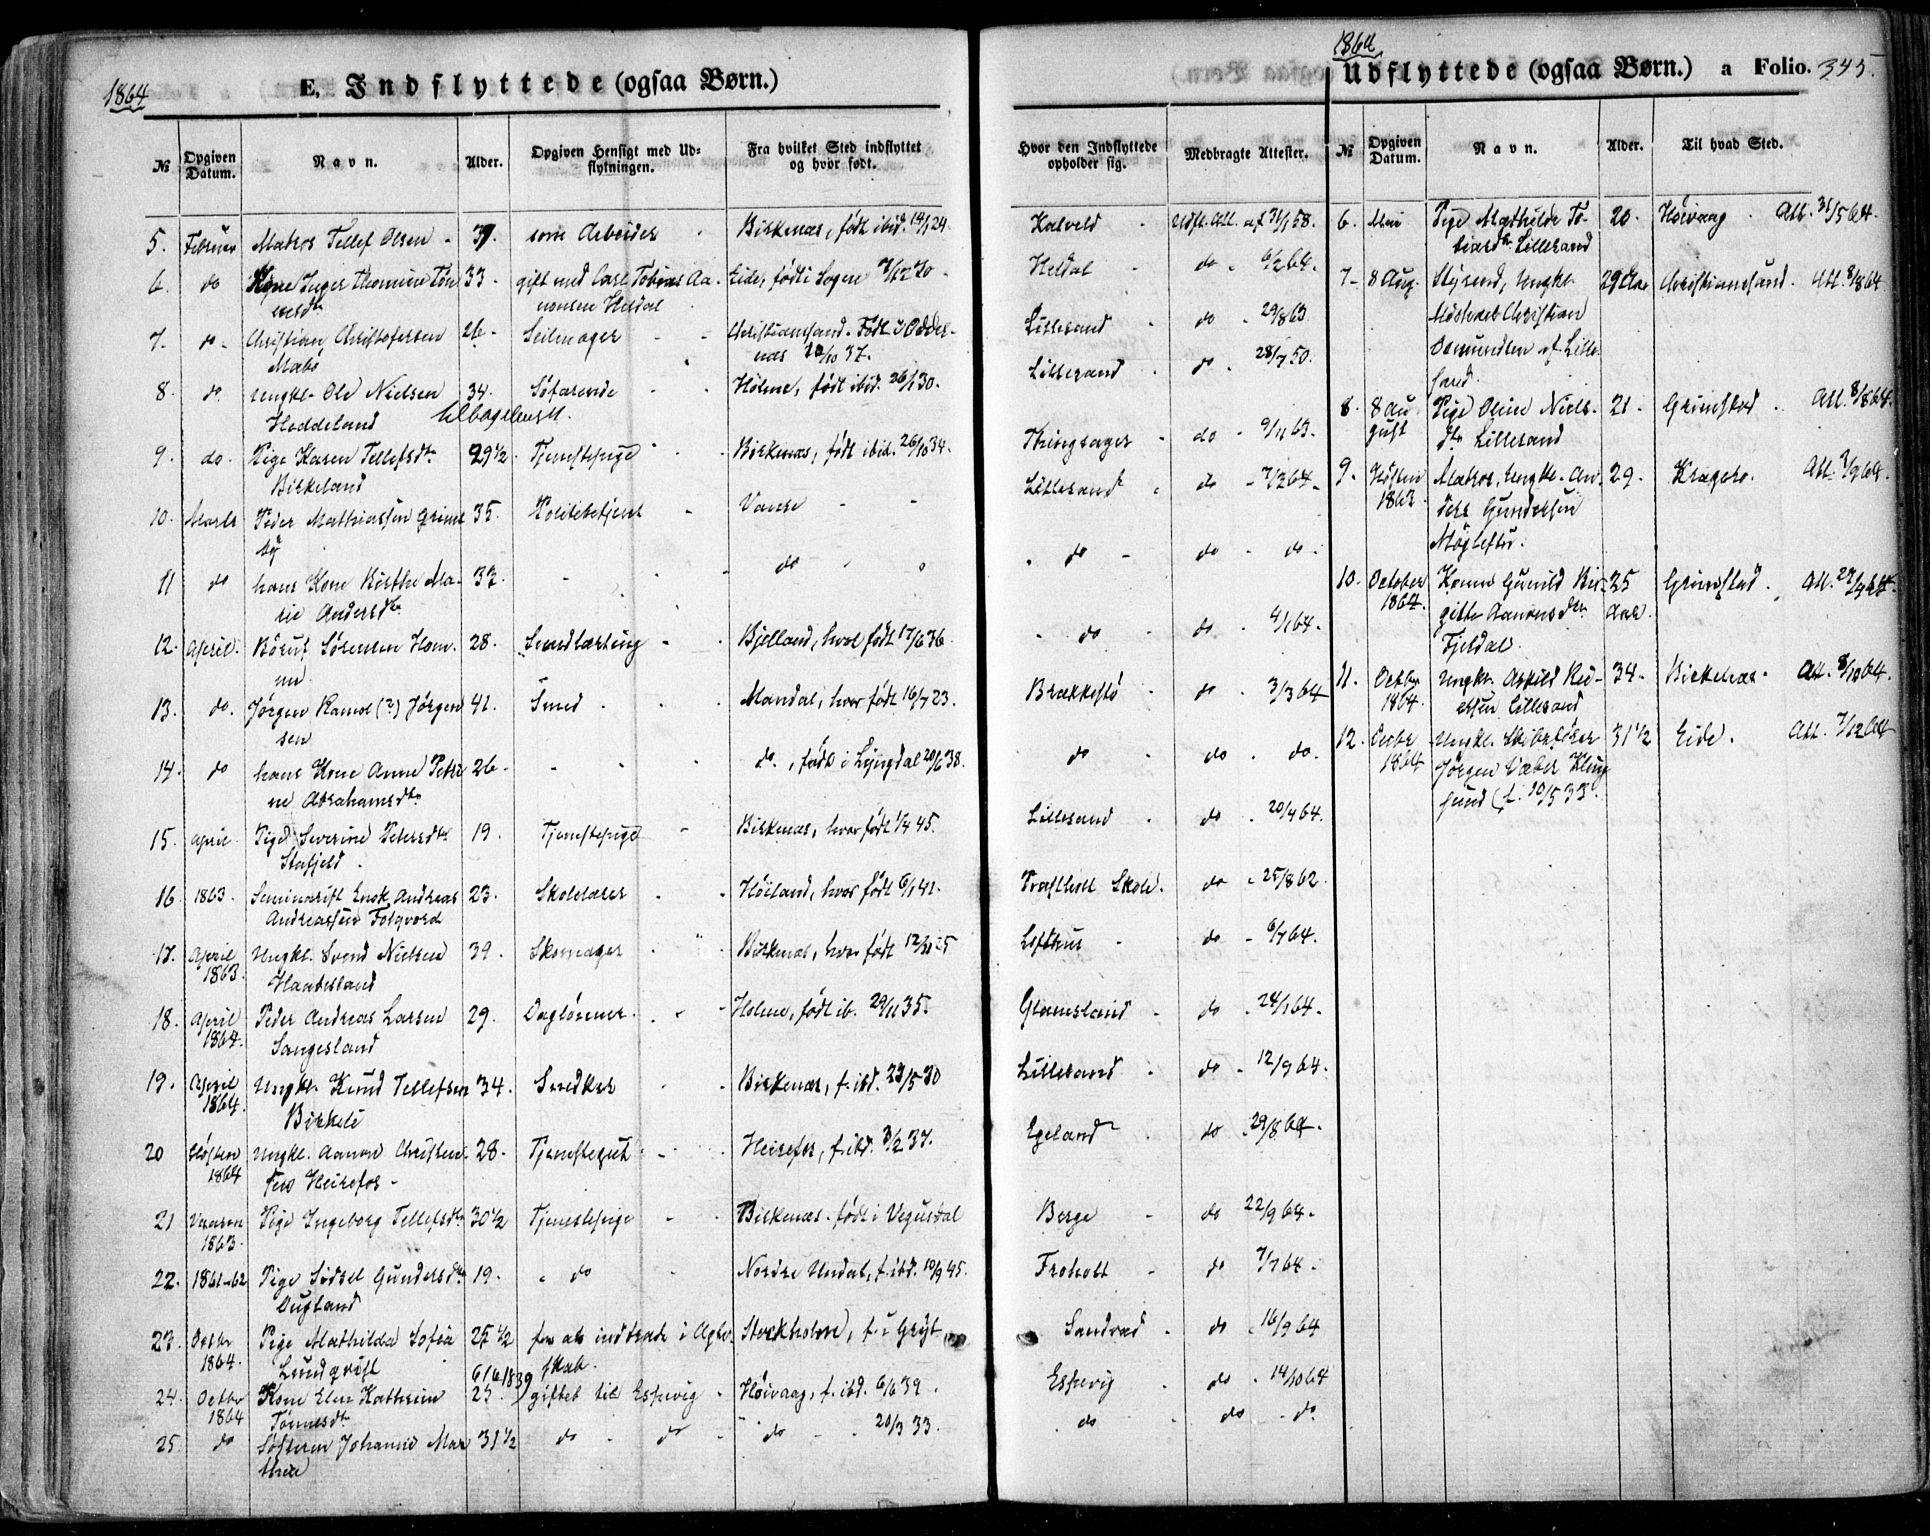 1864
E. Indflyttede (ogsaa Børn.)
№ Opgiven Datum. Navn. Alder. Opgiven Hensigt med Udflytningen. Fra hvilket Sted indflyttet og hvor født.
5. Februar Matros Tellef Olsen - 39 som Arbeider Birkenæs, født ibid. 14/1 24.
6. do Kone Inger Thomine Tøn- 33 - gift med Carl Tobias Aa- Eide, født i Sogne
nesdtr nonsen Heldal
7. do - Christian Christofersen 26. Seilmager - Christiansand. Født i Oddernæs 10/10 37.
8. do. Ungkl. Ole Nielsen 34. Søfarende - Holme, født ibid. 26/1 30.
Heddeland
9. do Pige Karen Tellefsdtr 29 1/2 Tjenestepige Birkenæs, født ibid. 26/10 34.
Birkeland
10. Marts Peder Mathiassen Grims- 35. Politibetjent - Vanse -
by
11 do hans Kone Birthe Ma- 37. do
rie Andersdtr
12. April. Sørensen Hom- 28. Bjelland, hvor født 17/6 36
me
13. do. Jørgen Ramse (?) Jørgen 41. Smed Mandal, hvor født 16/7 23.
sen
14. do hans Kone Anne Petri- 26. do., født i Lyngdal 20/6 38.
ne Abrahamsdtr
15. April Pige Severine Petersdtr 19. Tjenestepige - Birkenæs, hvor født 1/4 45.
Stafjeld.
16. 1863. Seminarist Enok Andreas 23. Skolelærer Høiland, hvor født 6/1 41.
Andreassen
17. April 1863. Ungkl. Svend Nielsen 39. Skomager Birkenæs, hvor født
18. April 1864. Peder Andreas Larsen 29. Daglønner. Holme, født ib. 29/11 35.
Sangesland
19. April 1864. Ungkl. Knud Tellefsen 34. Snedker Birkenæs, f. ibd. 23/5 30
Birkeli
20 Høsten 1864 Ungkl. Aanon Christen- 28. Tjenestegut Heirefos, f. ibd. 3/2 37.
sen Heirefos -
21 Vaaren 1863. Pige Ingeborg Tellefsdtr 30 1/2 Tjenestepige - Birkenæs. født i Vegusdal
22. 1861-62 Pige Sidsel Gundersdtr 19. do Nordre Undal, f. ibd. 10/9 45.
Ougland
23. Octbr 1864. Pige Mathilda Sofia 25 1/2 for at indtræde i Ægte- Stockholm, f. i Gryt
Lundqvist skab.
6/6 1839
24. Octbr 1864 Kone Elen Kathrine 25. giftet til Espevig - Høivaag, f. ibd. 6/6 39.
Tønnesdtr
25 do Søsteren Johanne Mar- 31 1/2 do - do - do 20/3 33.
threa
1864
Udflyttede (ogsaa Børn.) a Folio. 345.
Hvor den Indflyttede opholder sig. Medbragte Attester. № Opgiven Datum. Navn. Alder. Til hvad Sted.
Kalveld Udfl. Att. af 31/1 58.
Heldal do - 6/2 64.
Lillesand do - 29/8 63
Lillesand do - 28/7 50.
Thingsager - do - 9/11 63.
Lillesand do - 7/3 64.
do - do - do.
do do - 4/1 64.
Brækkestø - do - 3/3 64
do do - do.
Lillesand do - 20/4 64.
Skole. do - 25/8 62.
Lofthus do - 6/7 64.
Glamsland - do - 24/1 64.
Lillesand do - 12/9 64.
Egeland do - 29/8 64.
Berge do 22/9 64.
Froholt - do 7/7 64.
Sandvad do - 16/9 64
Espevig do - 14/10 64
do do - do.
6. Mai Pige Mathilde To- 20. Høivaag. Att. 31/5 64.
biasdtr Lillesand
7- 8 Aug. Styrmd, Ungkl. 29 Aar Christiansand. Att. 8/8 64
Christian
Osmundsen af Lille-
sand.
8. 8 August Pige Oline Niels- 21. Grimstad. Att. 8/8 64.
dtr Lillesand
9. Høsten 1863 Matros, Ungkl. An- 29. Kragerø. Att. 3/9 64.
ders Gundersen
10. October 1864. Konen Gunild Bir- 25 Aar. Grimstad. Att.
gitte Aanonsdtr
Fjeldal.
11. Octbr 1864. Ungkl. Askild 34. Birkenæs. Att. 8/10 64.
Lillesand
12. Decbr 1864 Ungkl. Skibsfører 31 1/2 Eide. Att. 7/12 64
Jørgen Wæber
sund (f. 10/5 33).